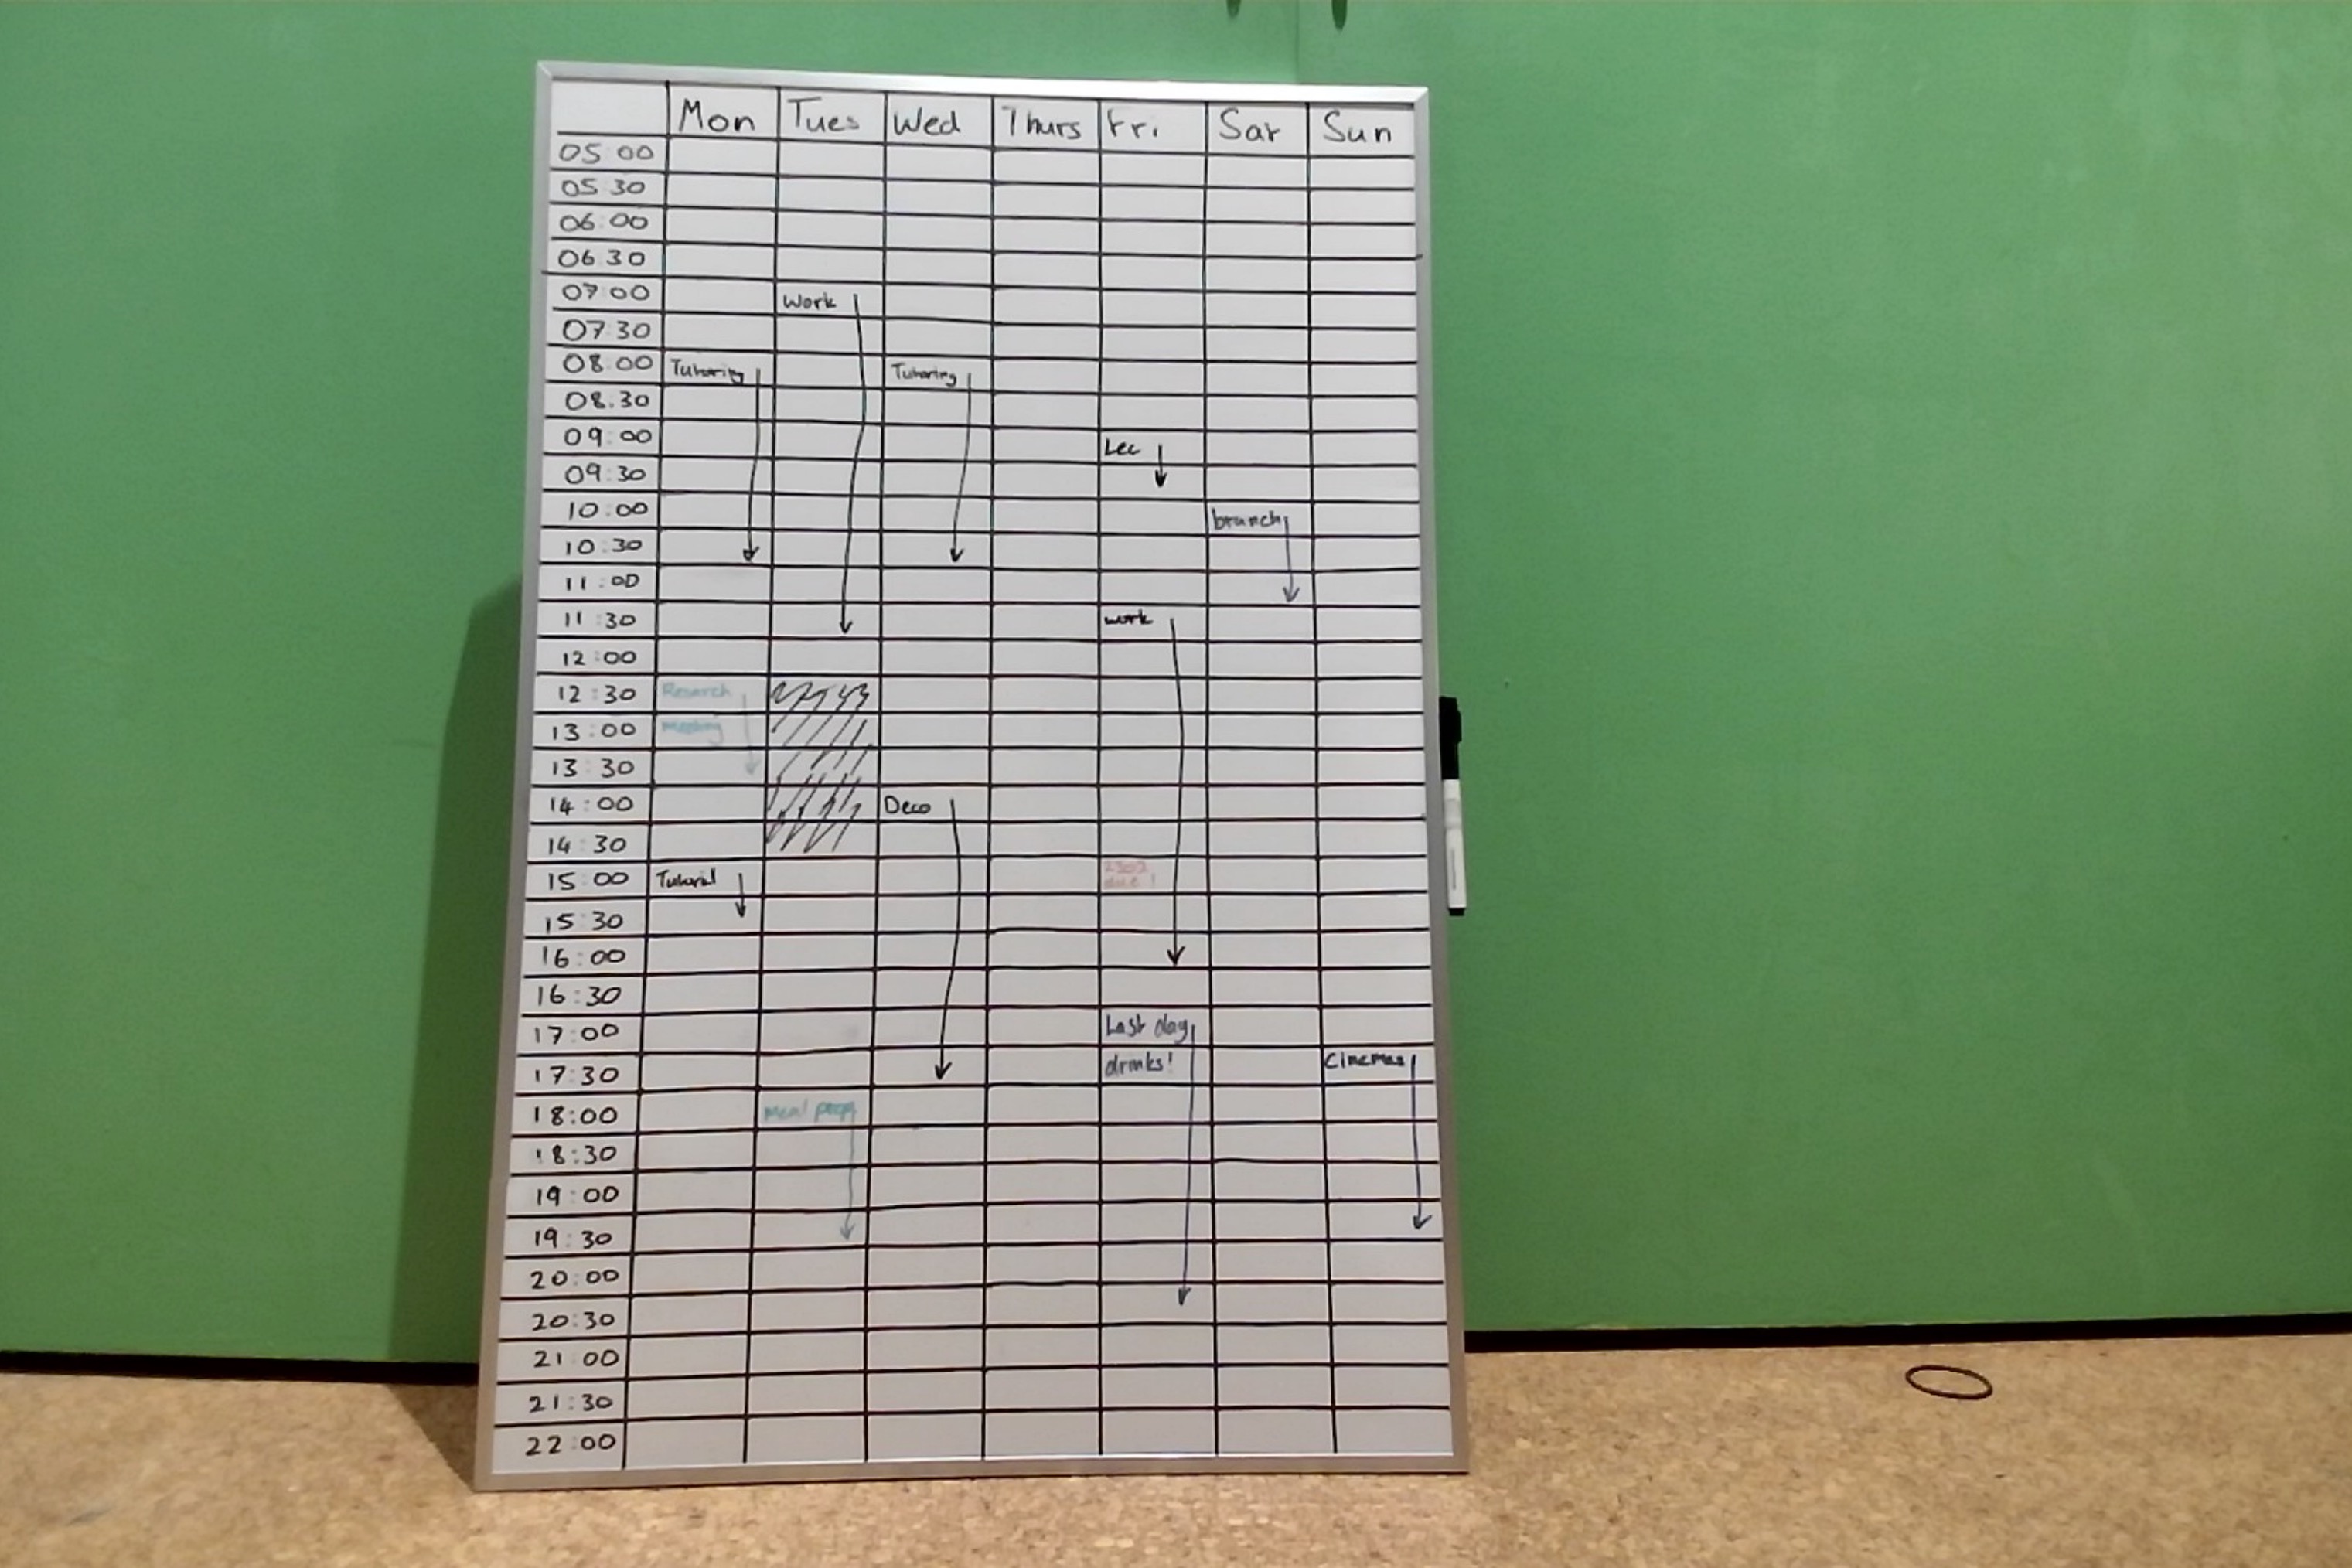 Mon Tues Wed Thurs Fri Sat Sun
05:00
05:30
06:00
06:30
07:00 Work
07:30
08:00 Tutoring Tutoring
08:30
09:00 Lec
09:30
10:00 brunch
10:30
11:00
11:30 work
12:00
12:30 Research
13:00 meeting
13:30
14:00 Deco
14:30
15:00 Tutorial 2302
due!
15:30
16:00
16:30
17:00 Last day
17:30 drinks! Cinemas
18:00 meal prep
18:30
19:00
19:30
20:00
20:30
21:00
21:30
22:00